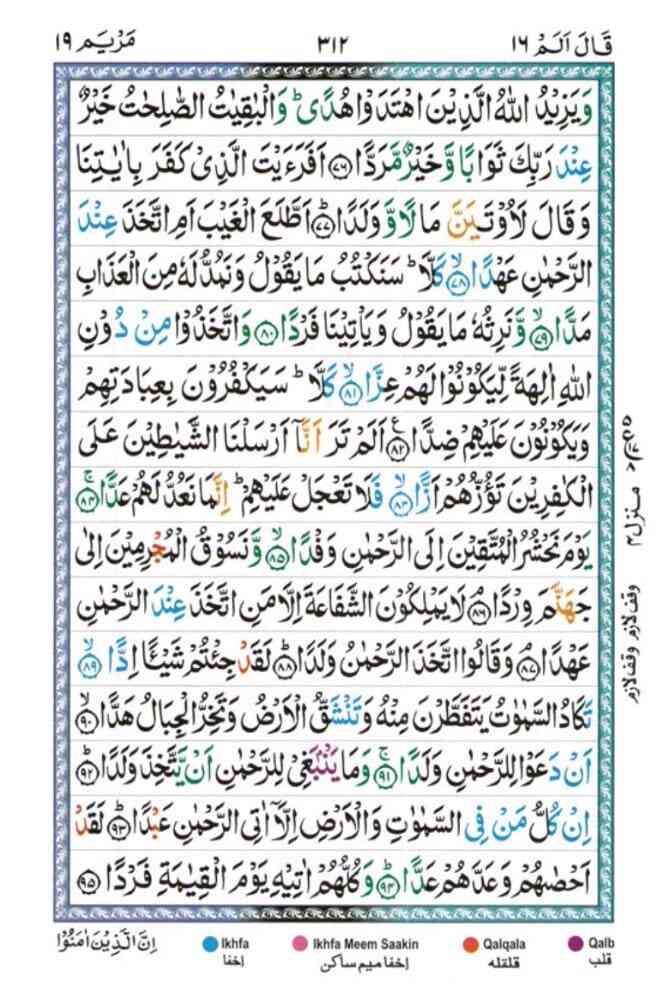 قَالَ اَلَمْ ١٦
٣١٢
مَرْيَم ١٩
وَيَزِيْدُ اللّٰهُ الَّذِيْنَ اهْتَدَوْا هُدًىؕ وَالْبٰقِيٰتُ الصّٰلِحٰتُ خَيْرٌ
عِنْدَ رَبِّكَ ثَوَابًا وَّخَيْرٌ مَّرَدًّا ﴿٧٦﴾ اَفَرَءَيْتَ الَّذِىْ كَفَرَ بِاٰيٰتِنَا
وَقَالَ لَاُوْتَيَنَّ مَالًا وَّوَلَدًاؕ ﴿٧٧﴾ اَطَّلَعَ الْغَيْبَ اَمِ اتَّخَذَ عِنْدَ
الرَّحْمٰنِ عَهْدًاۙ ﴿٧٨﴾ كَلَّاؕ سَنَكْتُبُ مَا يَقُوْلُ وَنَمُدُّ لَهٗ مِنَ الْعَذَابِ
مَدًّاۙ ﴿٧٩﴾ وَّنَرِثُهٗ مَا يَقُوْلُ وَيَاْتِيْنَا فَرْدًا ﴿٨٠﴾ وَاتَّخَذُوْا مِنْ دُوْنِ
اللّٰهِ اٰلِهَةً لِّيَكُوْنُوْا لَهُمْ عِزًّاۙ ﴿٨١﴾ كَلَّاؕ سَيَكْفُرُوْنَ بِعِبَادَتِهِمْ
وَيَكُوْنُوْنَ عَلَيْهِمْ ضِدًّا ﴿٨٢﴾ اَلَمْ تَرَ اَنَّاۤ اَرْسَلْنَا الشَّيٰطِيْنَ عَلَى
الْكٰفِرِيْنَ تَؤُزُّهُمْ اَزًّاۙ ﴿٨٣﴾ فَلَا تَعْجَلْ عَلَيْهِمْؕ اِنَّمَا نَعُدُّ لَهُمْ عَدًّاۚ ﴿٨٤﴾
يَوْمَ نَحْشُرُ الْمُتَّقِيْنَ اِلَى الرَّحْمٰنِ وَفْدًاۙ ﴿٨٥﴾ وَّنَسُوْقُ الْمُجْرِمِيْنَ اِلٰى
جَهَنَّمَ وِرْدًاۘ ﴿٨٦﴾ لَا يَمْلِكُوْنَ الشَّفَاعَةَ اِلَّا مَنِ اتَّخَذَ عِنْدَ الرَّحْمٰنِ
عَهْدًاۘ ﴿٨٧﴾ وَقَالُوا اتَّخَذَ الرَّحْمٰنُ وَلَدًاؕ ﴿٨٨﴾ لَقَدْ جِئْتُمْ شَيْـًٔا اِدًّاۙ ﴿٨٩﴾
تَكَادُ السَّمٰوٰتُ يَتَفَطَّرْنَ مِنْهُ وَتَنْشَقُّ الْاَرْضُ وَتَخِرُّ الْجِبَالُ هَدًّاۙ ﴿٩٠﴾
اَنْ دَعَوْا لِلرَّحْمٰنِ وَلَدًاۚ ﴿٩١﴾ وَمَا يَنْۢبَغِىْ لِلرَّحْمٰنِ اَنْ يَّتَّخِذَ وَلَدًاؕ ﴿٩٢﴾
اِنْ كُلُّ مَنْ فِى السَّمٰوٰتِ وَالْاَرْضِ اِلَّاۤ اٰتِى الرَّحْمٰنِ عَبْدًاؕ ﴿٩٣﴾ لَقَدْ
اَحْصٰىهُمْ وَعَدَّهُمْ عَدًّاؕ ﴿٩٤﴾ وَكُلُّهُمْ اٰتِيْهِ يَوْمَ الْقِيٰمَةِ فَرْدًا ﴿٩٥﴾
منزل ٤
وقف لازم
وقف لازم
اِنَّ الَّذِيْنَ اٰمَنُوْا
Ikhfa
Ikhfa Meem Saakin
Qalqala
Qalb
اخفا
اخفا میم ساکن
قلقلہ
قلب